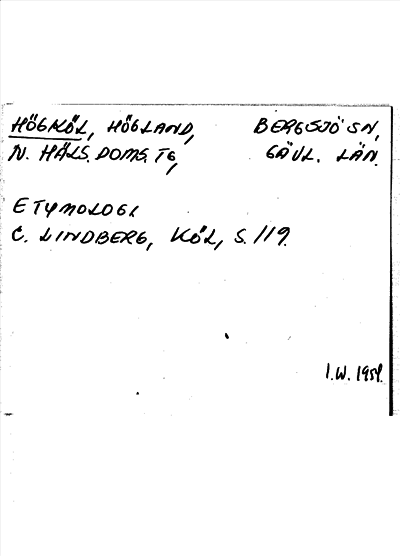 HÖGKÖL, HÖGLAND, BERGSJÖ SN,
N. HÄLS. DOMS. TG, GÄVL. LÄN.
ETYMOLOGI
C. LINDBERG, KÖL, S. 119.
I.W. 1959.